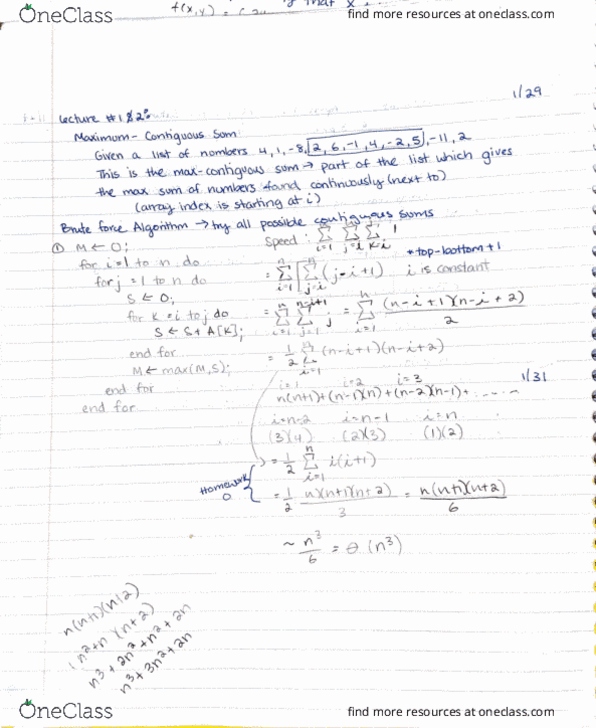 OneClass
find more resources at oneclass.com
f(x,y) =
that x
1/29
Lecture #1 & 2:
Maximum-Contiguous Sum
Given a list of numbers 4, 1, -8, 2, 6, -1, 4, -2, 5, -11, 2
This is the max-contiguous sum → part of the list which gives
the max sum of numbers found continuously (next to)
(array index is starting at i)
Brute force Algorithm → try all possible contiguous sums
① M ← 0; Speed: n∑i=1 n∑j=i j∑k=i 1
*top-bottom+1
for i=1 to n do = n∑i=1 n∑j=i (j-i+1) i is constant
for j=1 to n do
S ← 0; = n∑i=1 n-i+1∑j=1 j = n∑i=1 (n-i+1)(n-i+2)/2
for k=i to j do
S ← S + A[k];
end for = 1/2 n∑i=1 (n-i+1)(n-i+2)
M ← max(M,S); i=1 i=2 i=3 1/31
end for n(n+1)+(n-1)(n)+(n-2)(n-1)+......
end for i=n-2 i=n-1 i=n
(3)(4) (2)(3) (1)(2)
= 1/2 n∑i=1 i(i+1)
Homework
= 1/2 n(n+1)(n+2)/3 = n(n+1)(n+2)/6
~ n³/6 = θ(n³)
n(n+1)(n+2)
n²+n (n+2)
n³+2n²+n²+2n
n³+3n²+2n
OneClass
find more resources at oneclass.com